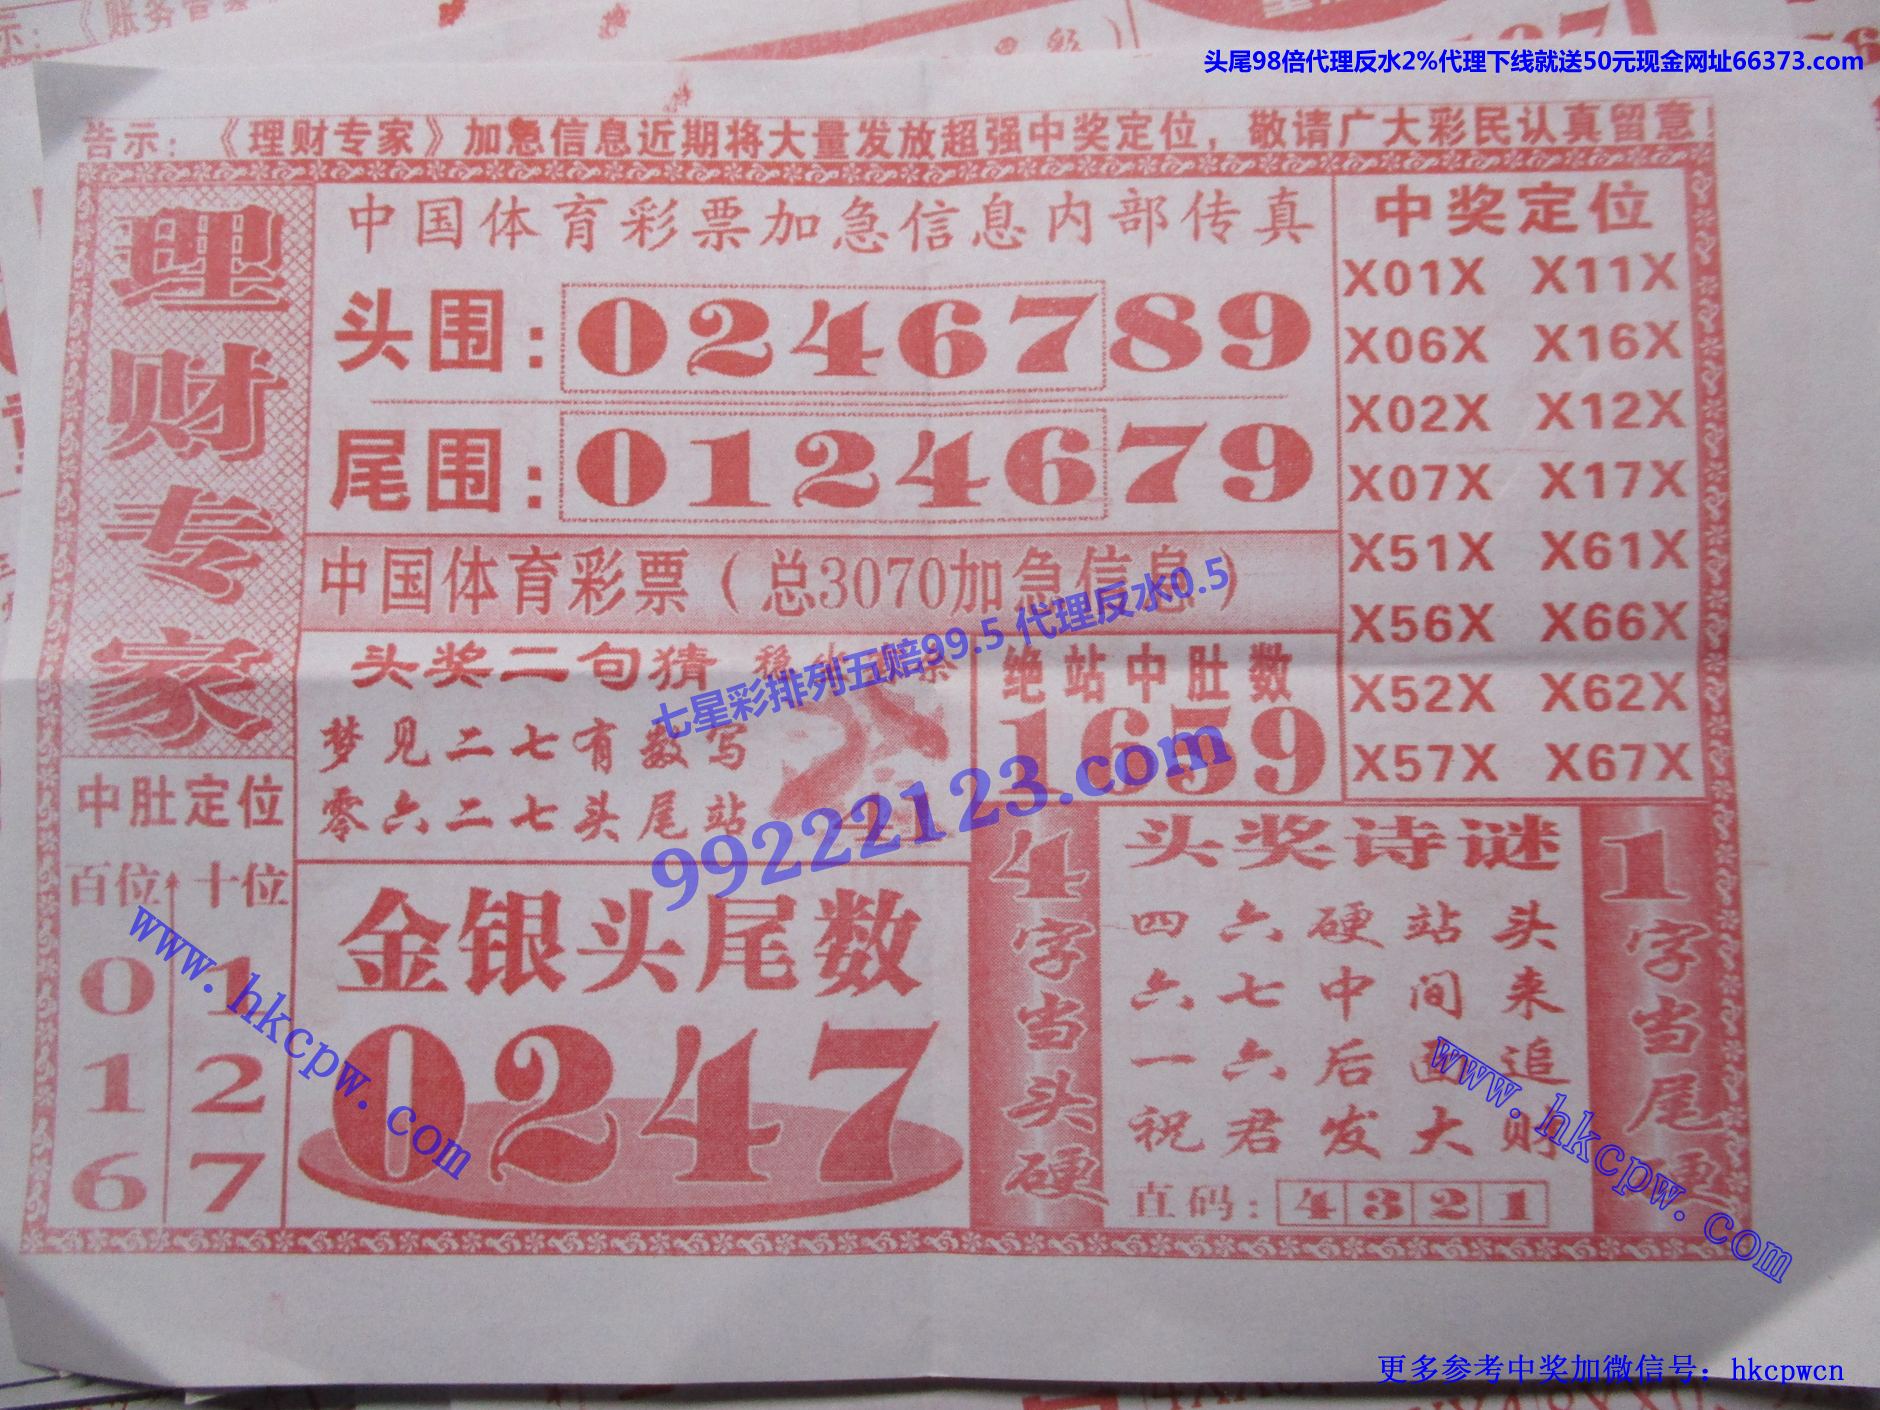 头尾98倍代理反水2%代理下线就送50元现金网址66373.com
告示：《理财专家》加急信息近期将大量发放超强中奖定位，敬请广大彩民认真留意！
理财专家
中国体育彩票加急信息内部传真
头围：0246789
尾围：0124679
中奖定位
X01X X11X
X06X X16X
X02X X12X
X07X X17X
X51X X61X
X56X X66X
X52X X62X
X57X X67X
中国体育彩票（总3070加急信息）
头奖二句猜
梦见二七有数写
零六二七头尾站
绝站中肚数
1659
七星彩排列五赔99.5 代理反水0.5
99222123.com
中肚定位
百位 十位
0 1
1 2
6 7
金银头尾数
0247
4字当头硬
头奖诗谜
四六硬站头
六七中间来
一六后面追
祝君发大财
直码：4321
1字当尾硬
www.hkcpw.com
www.hkcpw.com
更多参考中奖加微信号：hkcpwcn